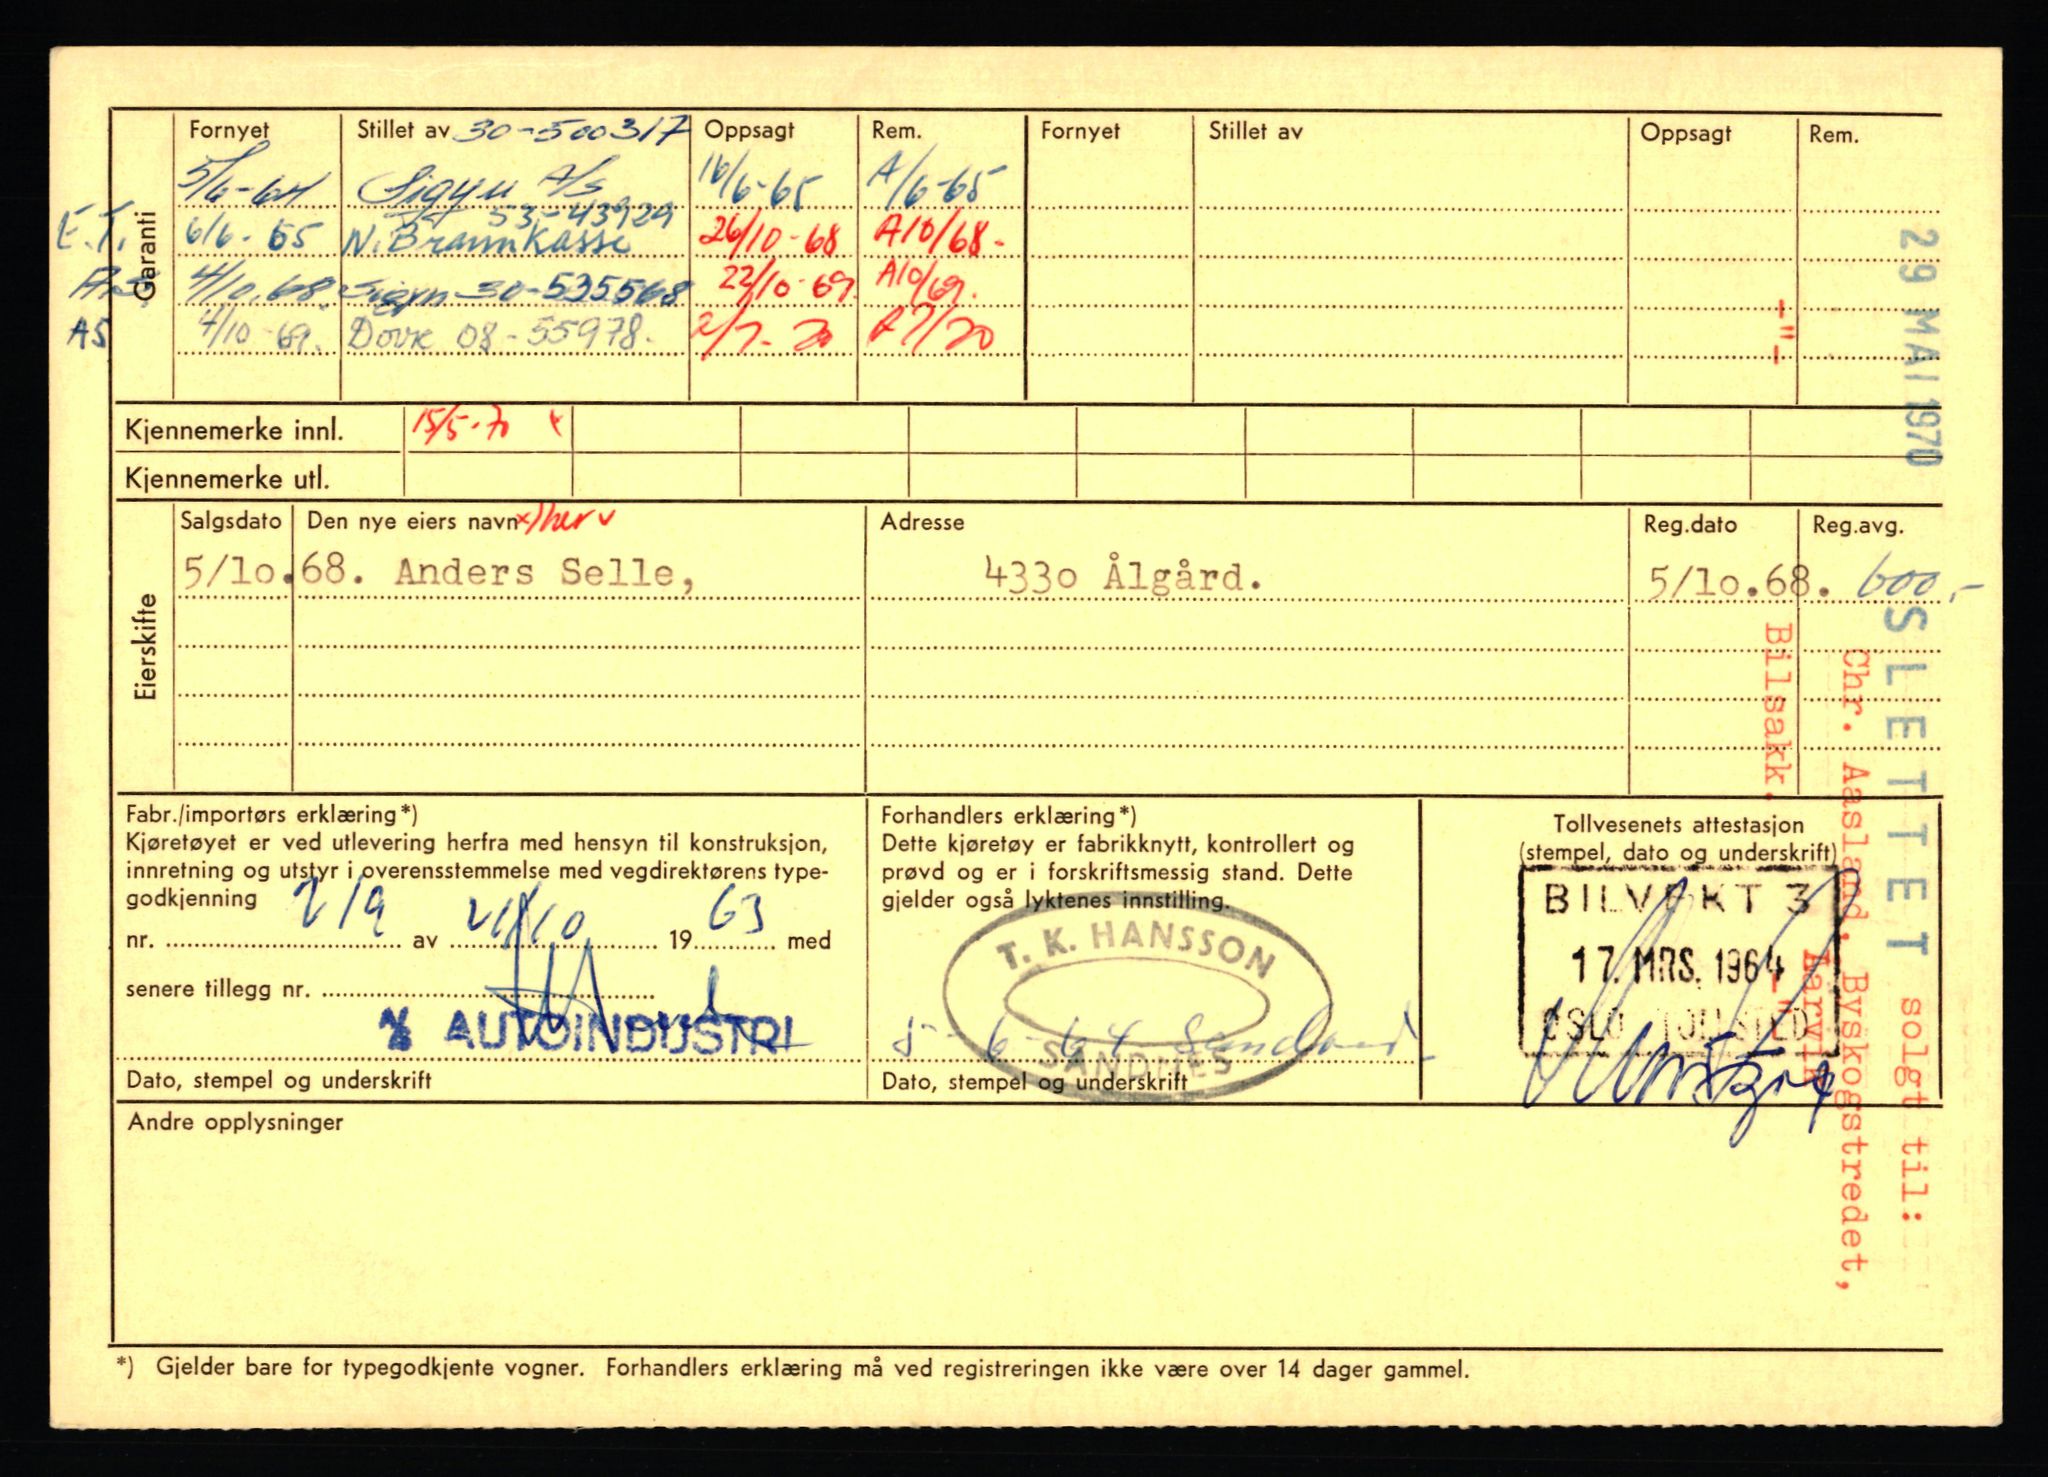 Garanti
Fornyet Stillet av 30-500317 Oppsagt Rem. Fornyet Stillet av Oppsagt Rem.
5/6-64 Sigyn A/S 16/6-65 A/6-65
53-43929
E.T. 6/6-65 N. Brannkasse 26/10-68 A10/68-
4/10.68. Sigyn 30-535568 22/10-69. A10/69.
AS 4/10-69. Dovre 08-55978. 2/7-70 A7/70
Kjennemerke innl. 15/5-70
Kjennemerke utl.
Eierskifte
Salgsdato Den nye eiers navn Adresse Reg.dato Reg.avg.
5/1o.68. Anders Selle, 433o Ålgård. 5/1o.68. 600,-
Fabr./importørs erklæring*)
Kjøretøyet er ved utlevering herfra med hensyn til konstruksjon,
innretning og utstyr i overensstemmelse med vegdirektørens type-
godkjenning
nr. 219 av 21/10 1963 med
senere tillegg nr.
A/S AUTOINDUSTRI
Dato, stempel og underskrift
Forhandlers erklæring*)
Dette kjøretøy er fabrikknytt, kontrollert og
prøvd og er i forskriftsmessig stand. Dette
gjelder også lyktenes innstilling.
T. K. HANSSON
SANDNES
5-6-64
Dato, stempel og underskrift
Tollvesenets attestasjon
(stempel, dato og underskrift)
BILVEKT 3
17. MRS. 1964
OSLO TOLLSTED
Andre opplysninger
*) Gjelder bare for typegodkjente vogner. Forhandlers erklæring må ved registreringen ikke være over 14 dager gammel.
29 MAI 1970 SLETTET solgt til:
Chr. Aasland, Byskogstredet,
Larvik
-"- Bilsakk. -"-